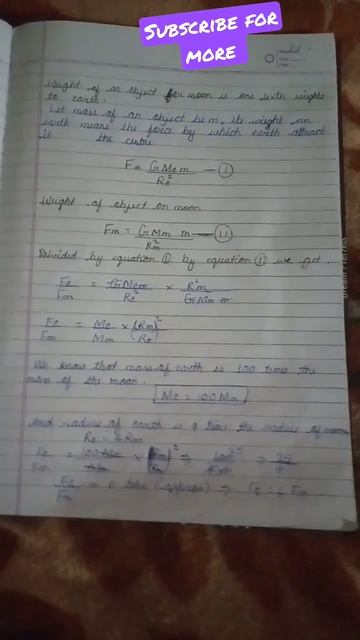 SUBSCRIBE FOR
MORE
weight of an object for moon is one sixth weights
to earth.
Let mass of an object be m, its weight on
earth means the force by which earth attract
it the centre
F = G Me m — (I)
Re²
Weight of object on moon
Fm = G Mm m — (II)
R²m
Divided by equation (I) by equation (II) we get.
Fe = G Me m × R²m
Fm Re² G Mm m
Fe = Me × (Rm)²
Fm Mm (Re)
We know that mass of earth is 100 times the
mass of the moon.
Me = 100 Mm
And radius of earth is 4 time the radius of moon
Re = 4Rm
Fe = 100
Fm
Fe = 6
Fm